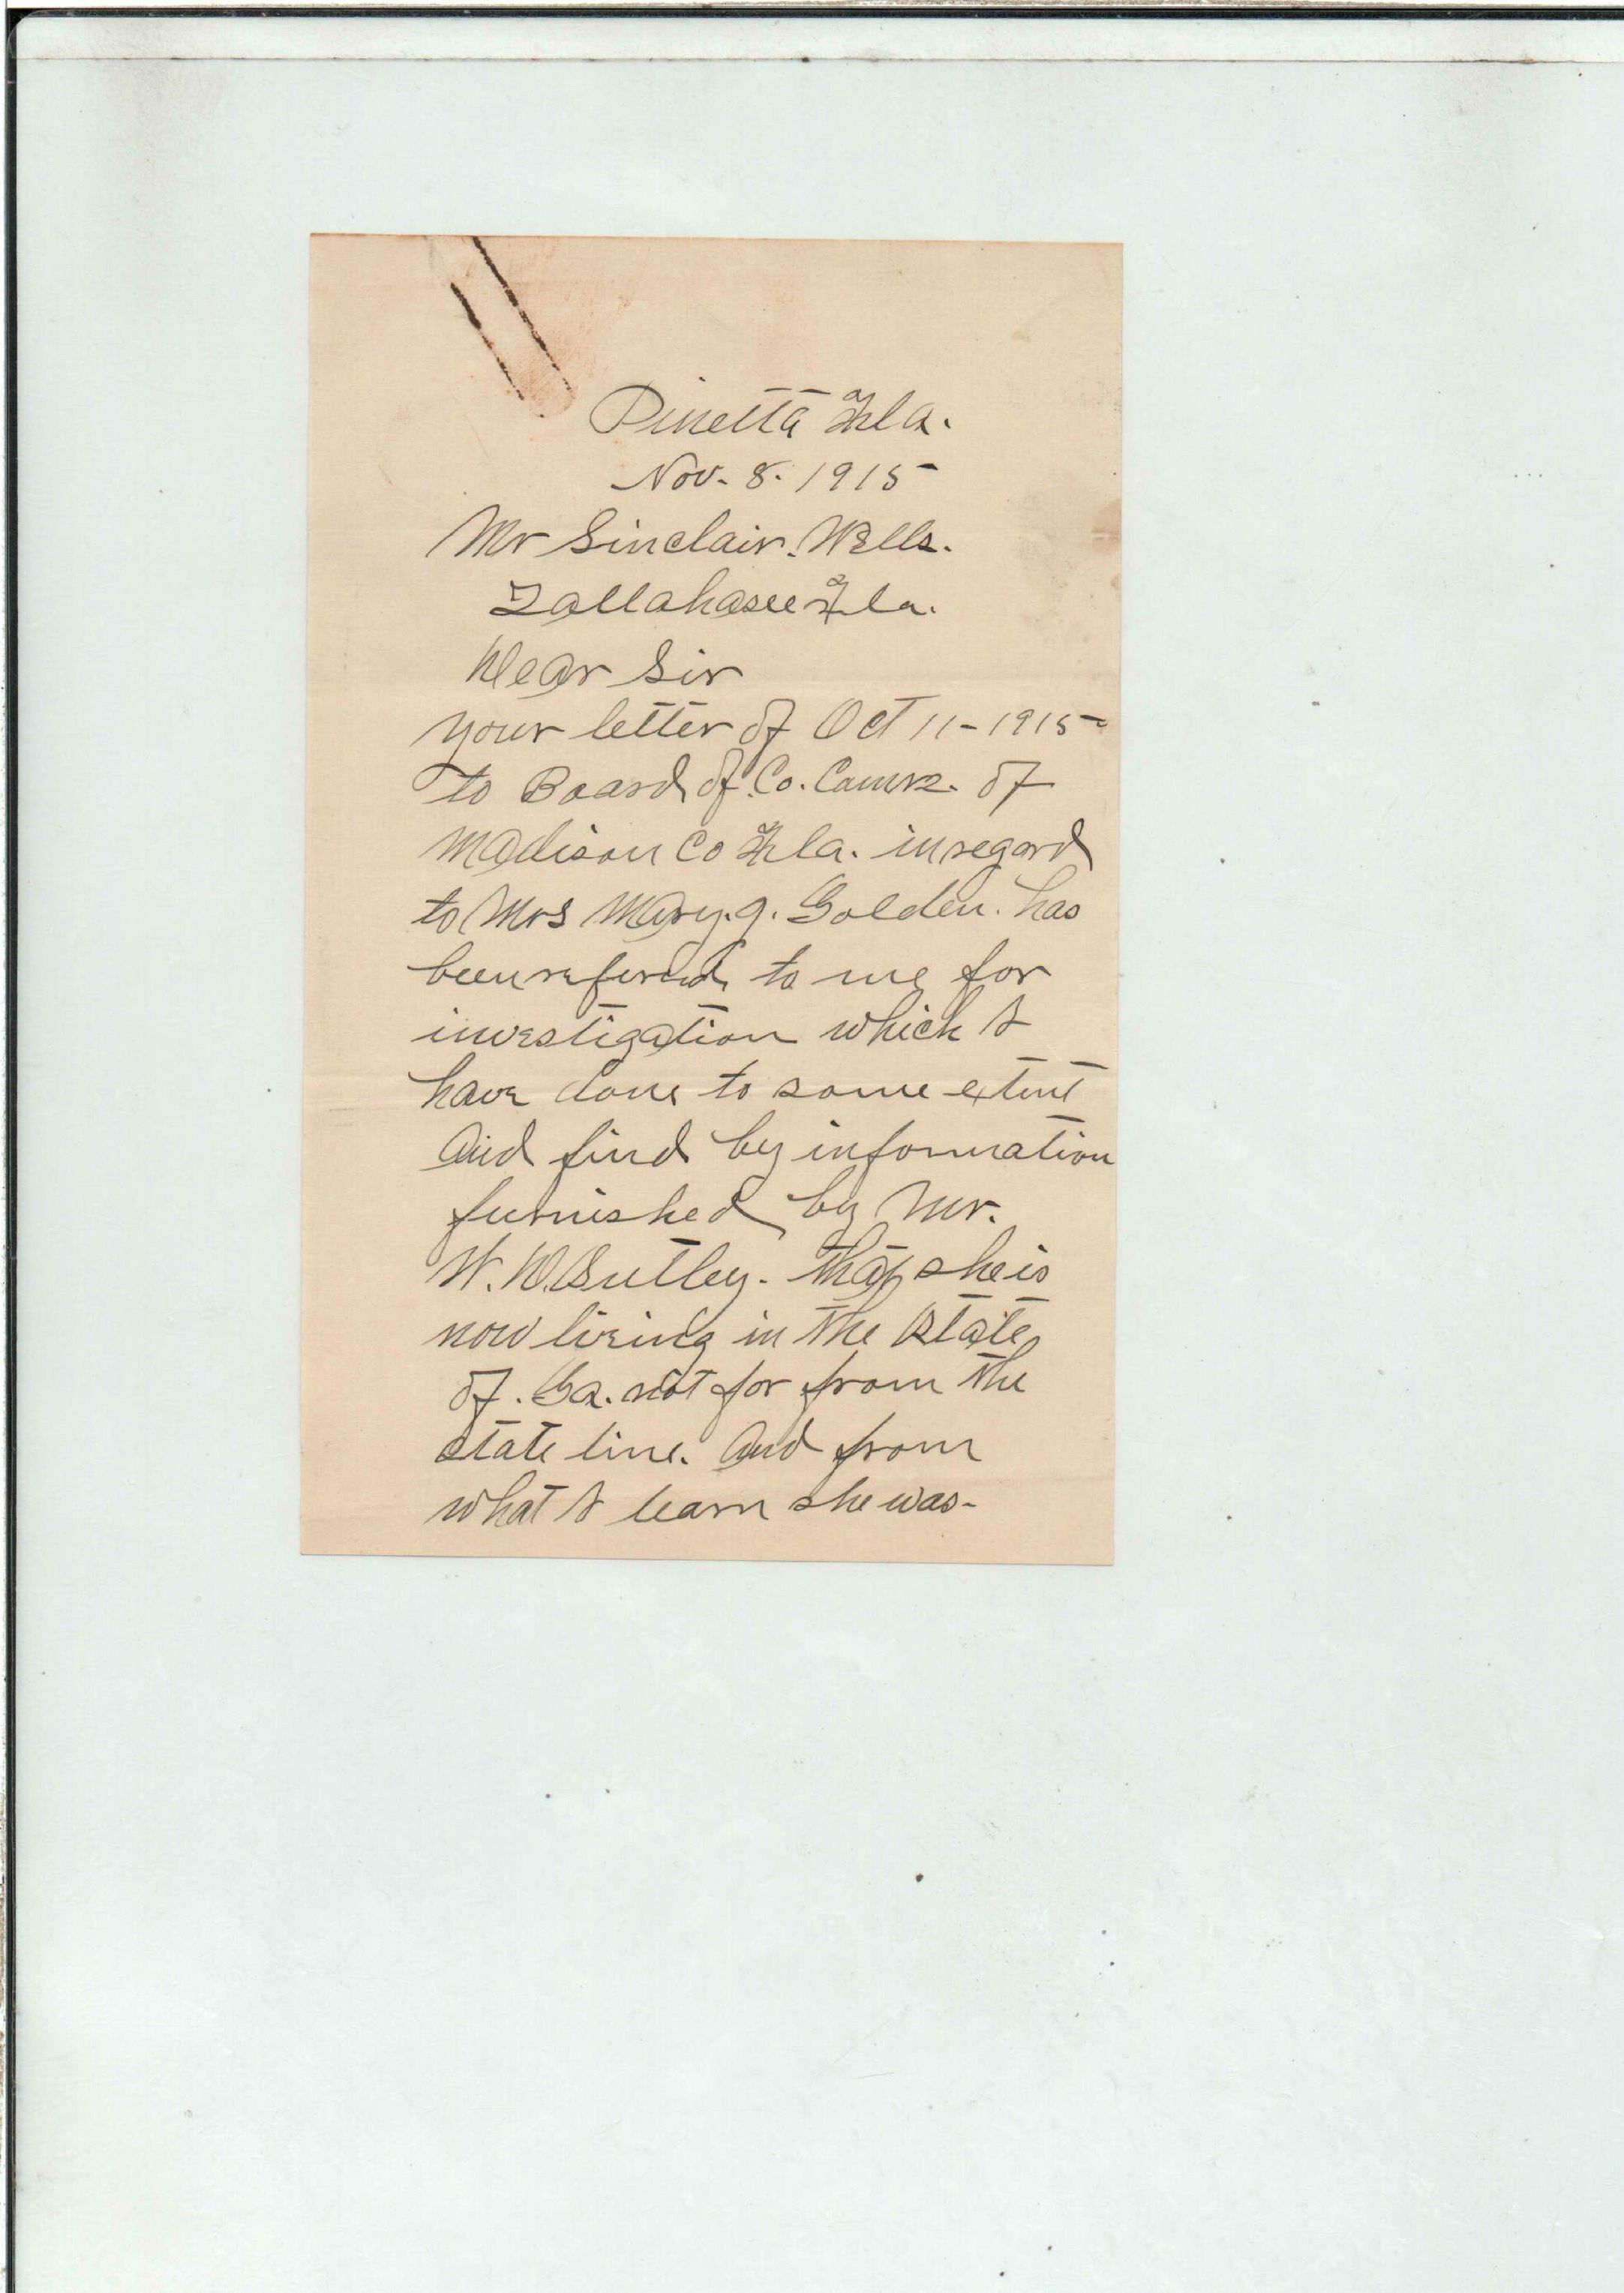 Pinetta Fla.
Nov. 8. 1915
Mr Sinclair. Wells.
Tallahasee Fla.
Dear Sir
your letter of Oct 11 - 1915
to Board of Co. Comrs. of
Madison Co Fla. in regard
to Mrs Mary. J. Golden. has
been refered to me for
investigation which I
have done to some extent
And find by information
furnished by Mr.
W. W. Sutley. that she is
now living in the state
of. Ga. not far from the
state line. And from
what I learn she was-